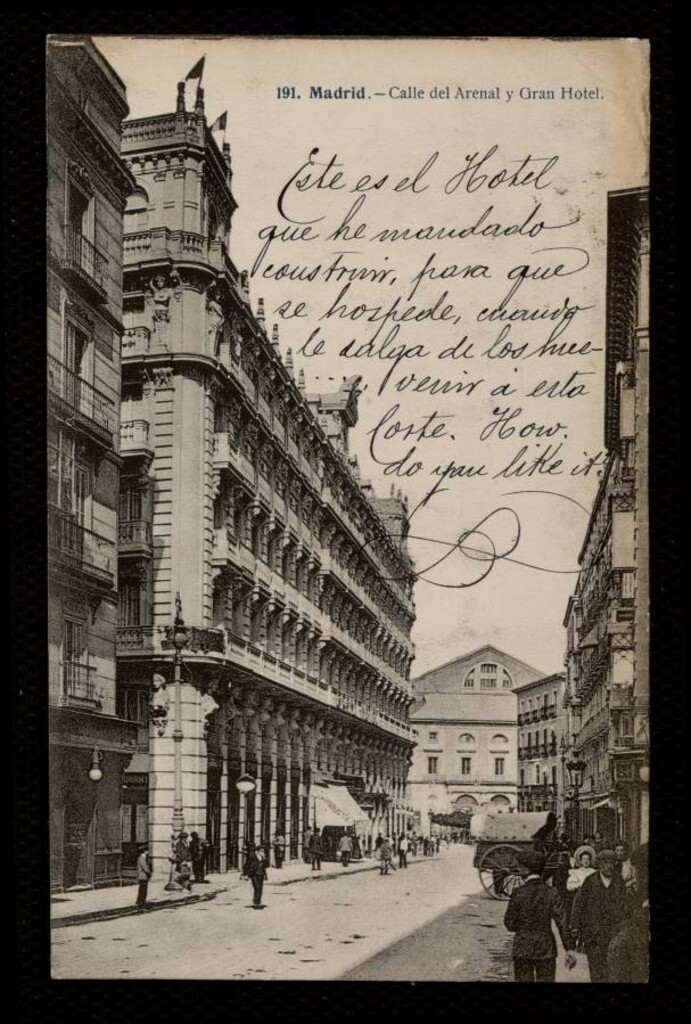 191. Madrid. — Calle del Arenal y Gran Hotel.
Este es el Hotel
que he mandado
construir, para que
se hospede, cuando
le salga de los hue-
venir á esta
Corte. How.
do you like it?